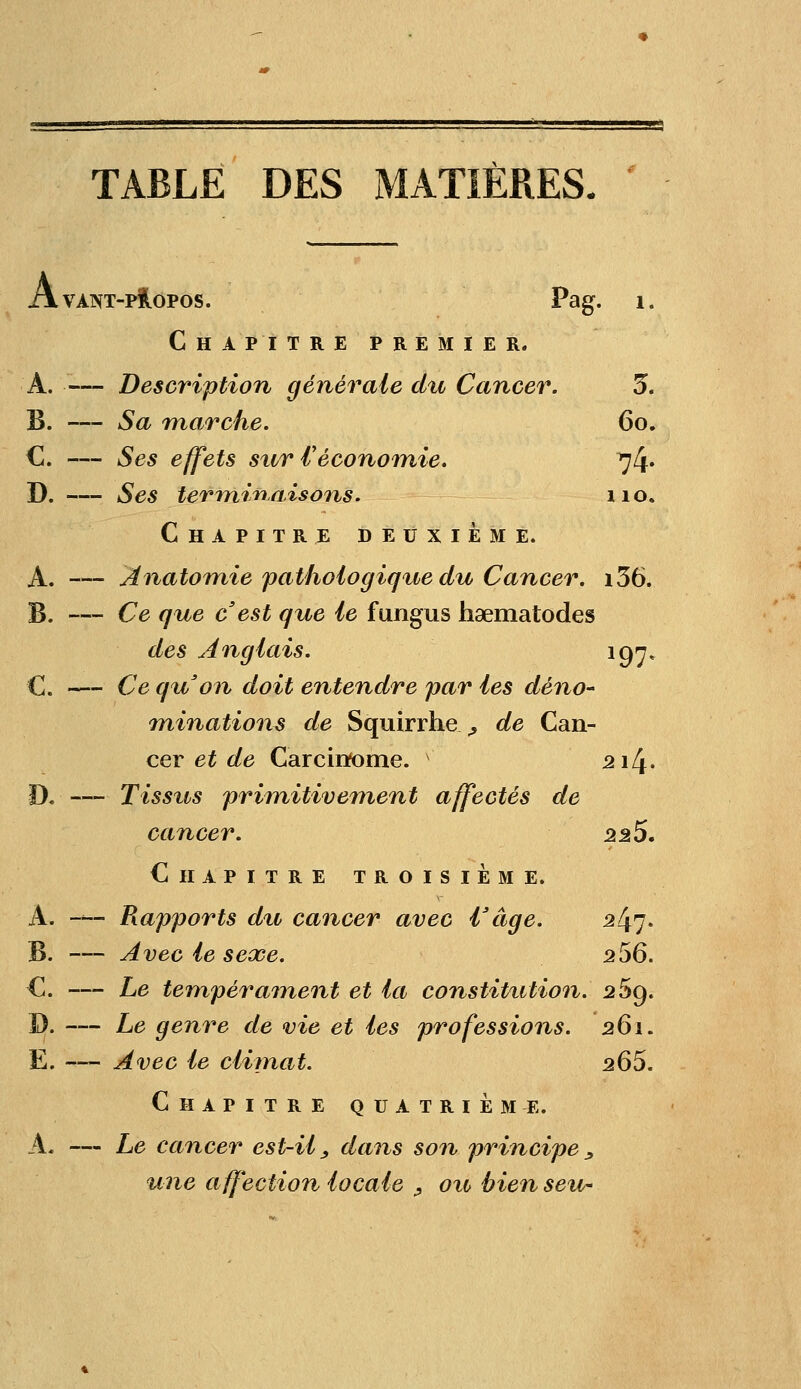 TABLE DES MATIÈRES.
AVANT-PROPOS. Pag. 1.
CHAPITRE PREMIER.
A. — Description générale du Cancer. 3.
B. — Sa marche. 60.
C. — Ses effets sur l'économie. 74.
D. — Ses terminaisons. 110.
CHAPITRE DEUXIÈME.
A. — Anatomie pathologique du Cancer. 136.
B. — Ce que c'est que le fungus hæmatodes
des Anglais. 197.
C. — Ce qu'on doit entendre par les déno-
minations de Squirrhe, de Can-
cer et de Carcinome. 214.
D. — Tissus primitivement affectés de
cancer. 225.
CHAPITRE TROISIÈME.
A. — Rapports du cancer avec l'âge. 247.
B. — Avec le sexe. 256.
C. — Le tempérament et la constitution. 259.
D. — Le genre de vie et les professions. 261.
E. — Avec le climat. 265.
CHAPITRE QUATRIÈME.
A. — Le cancer est-il, dans son principe,
une affection locale, ou bien seu-